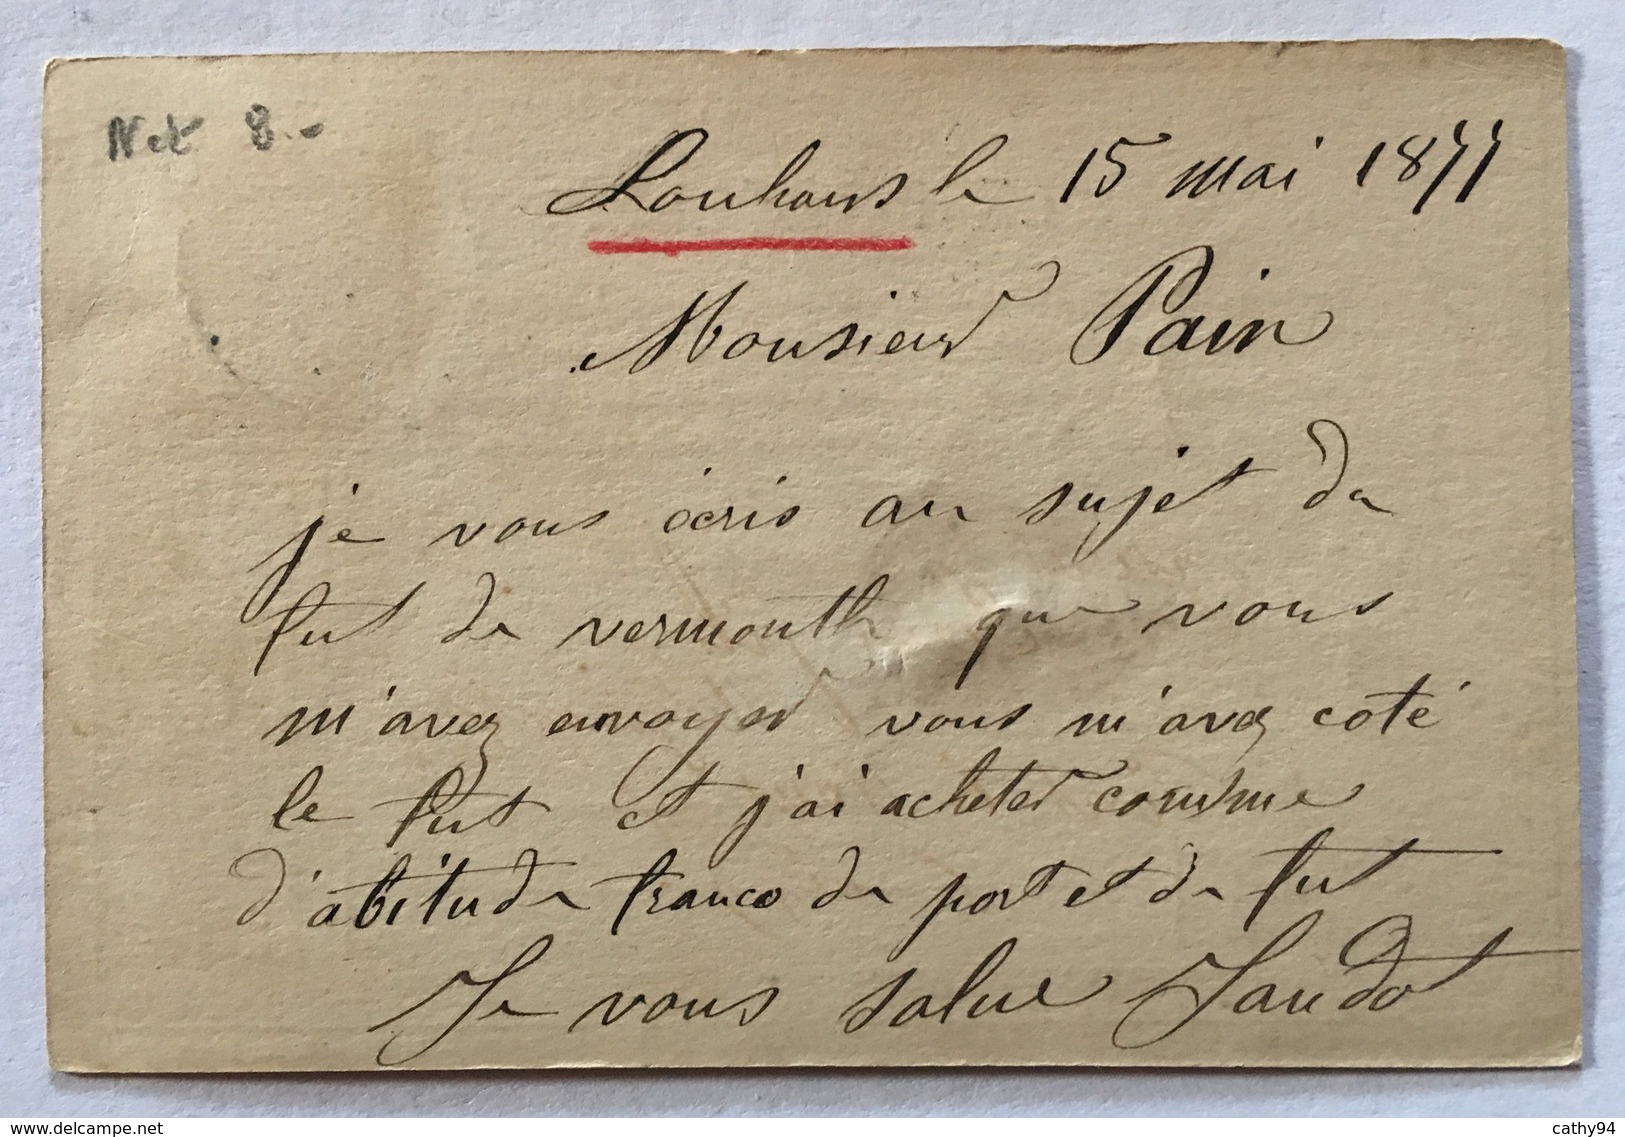 Net 8.-
Louhans le 15 mai 1877
Monsieur Pain
je vous ecris au sujet de
fut de vermouth que vous
m'avez envoyer vous m'avez coté
le fut et j'ai acheter comme
d'abitude franco de port et de fut
Je vous salue Jaudot
www.delcampe.net
cathy94